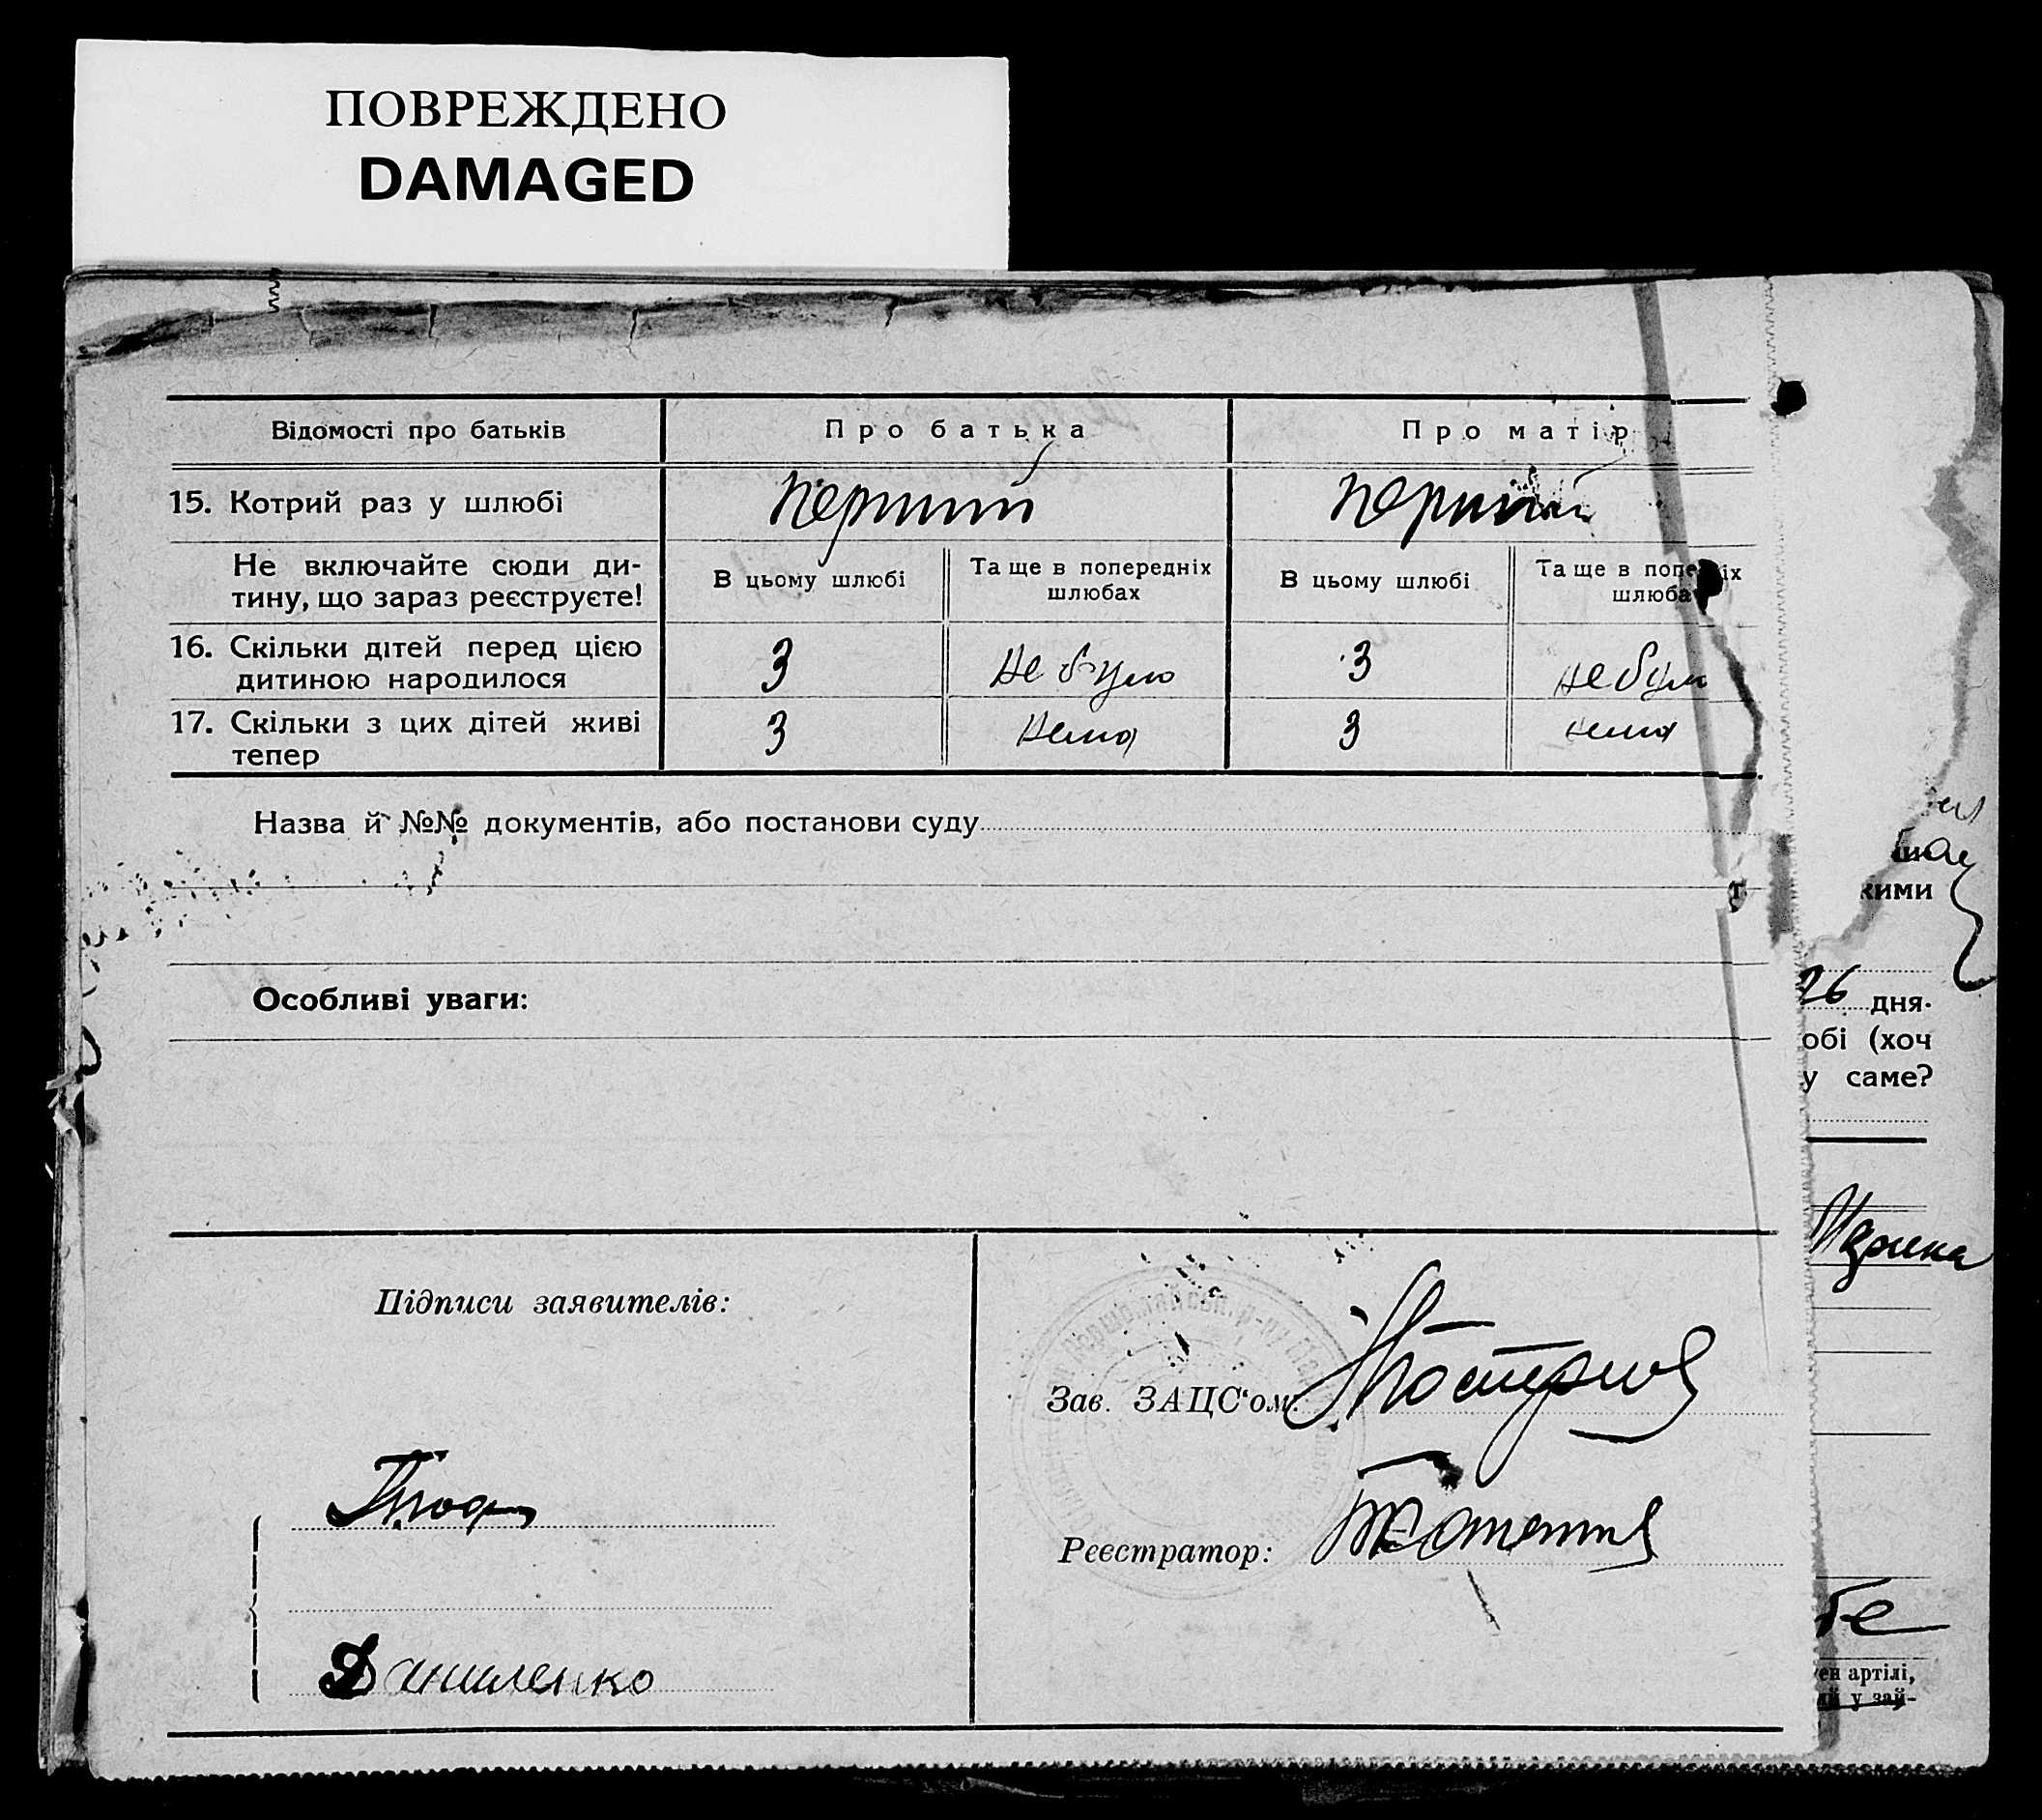 ПОВРЕЖДЕНО
DAMAGED
Відомості про батьків
Про батька
Про матір
15. Котрий раз у шлюбі
перший
перший
Не включайте сюди ди-
тину, що зараз реєструєте!
В цьому шлюбі
Та ще в попередніх
шлюбах
В цьому шлюбі
Та ще в попе іх
шлюба
16. Скільки дітей перед цією
дитиною народилося
3
не було
3
не було
17. Скільки з цих дітей живі
тепер
3
нема
3
нема
Назва й №№ документів, або постанови суду
кими
Особливі уваги:
26 дня.
обі (хоч
у саме?
Підписи заявителів:
Зав. ЗАЦС'ом:
Реєстратор:
Даниленко
ен артілі,
ий у зай-